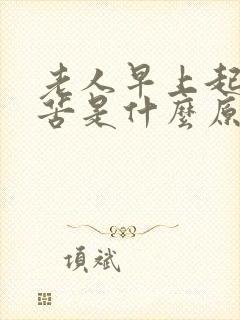 老人早上起
苦是什麼原
項斌